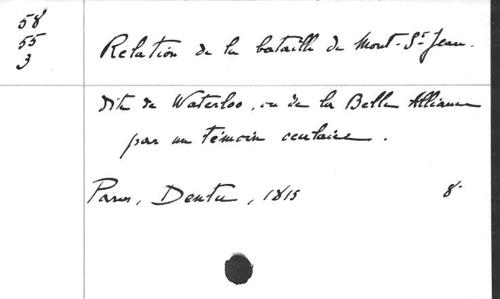 58
55
3
Relation de la bataille de Mont-St-Jean.
dite de Waterloo, ou de la Belle Alliance
par un témoin oculaire.
Paris, Dentu, 1815 8°